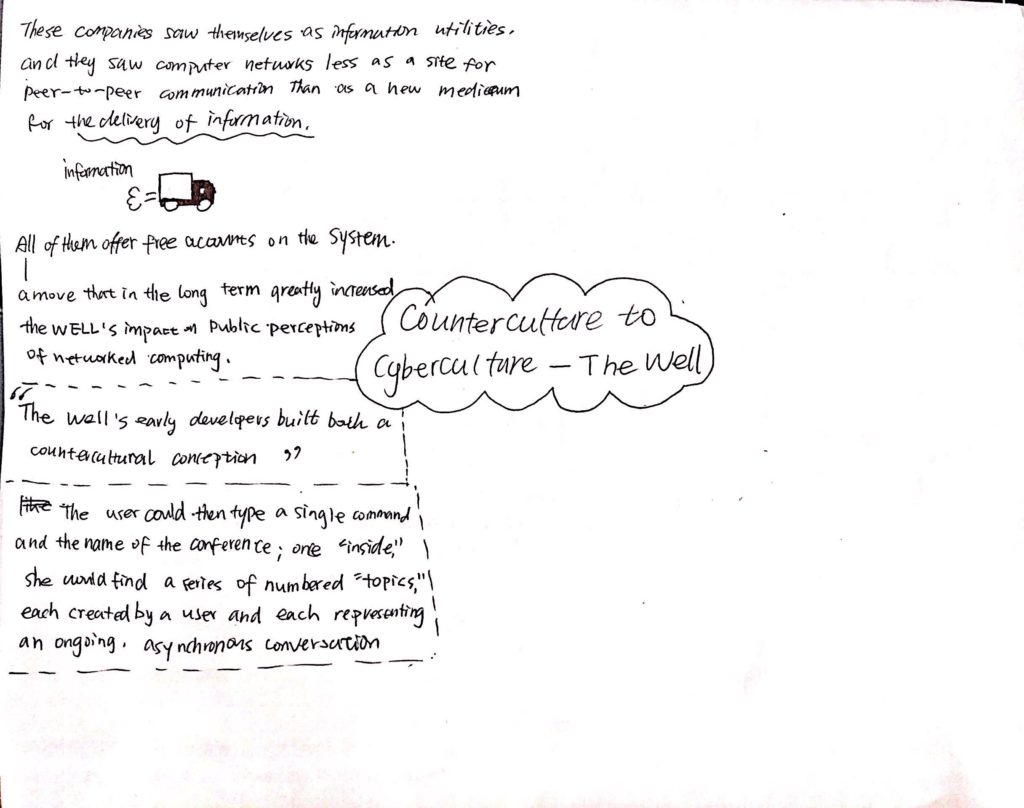 These companies saw themselves as information utilities,
and they saw computer networks less as a site for
peer-to-peer communication than as a new medium
for the delivery of information.
information
All of them offer free accounts on the system.
a move that in the long term greatly increased
the WELL's impact on public perceptions
of networked computing.
Counterculture to
Cyberculture – The Well
“The well's early developers built both a
countercultural conception ”
The user could then type a single command
and the name of the conference; one “inside,”
she would find a series of numbered “topics,”
each created by a user and each representing
an ongoing, asynchronous conversation